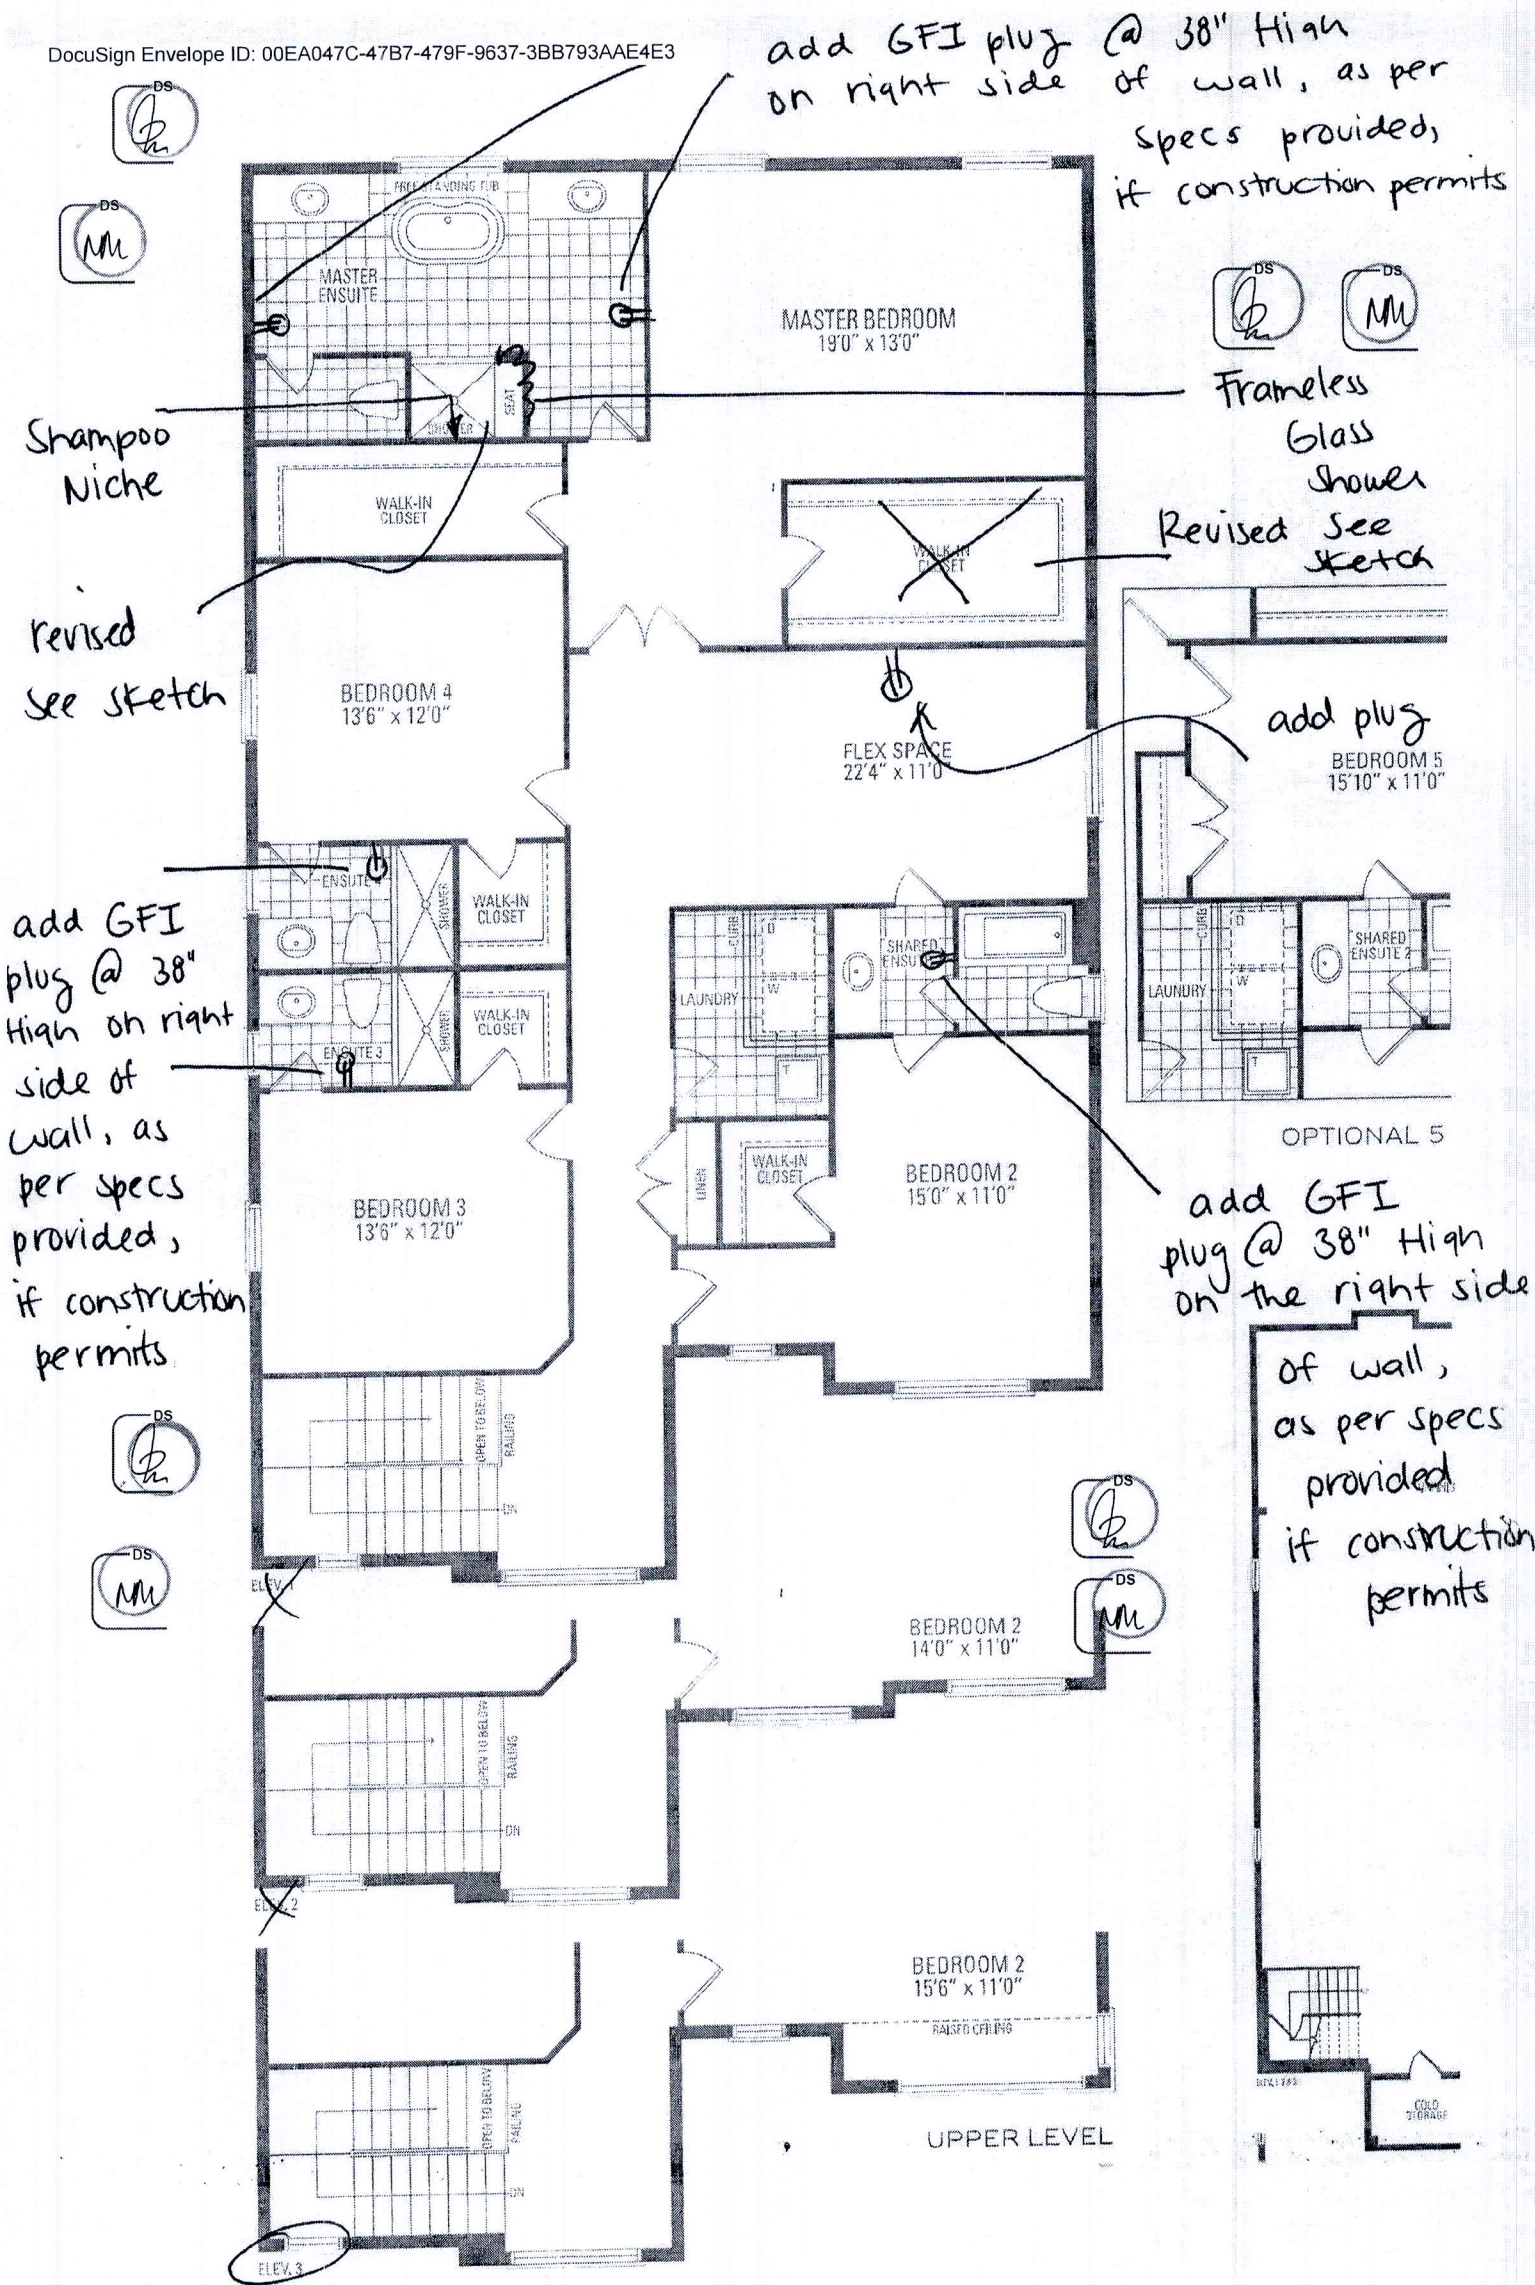 DocuSign Envelope ID: 00EA047C-47B7-479F-9637-3BB793AAE4E3
add GFI plug @ 38" High
on right side of wall, as per
specs provided,
if construction permits
DS
DS
NM
FREE STANDING TUB
MASTER
ENSUITE
MASTER BEDROOM
19'0" x 13'0"
DS
DS
NM
SEAT
SHOWER
Shampoo
Niche
Frameless
Glass
Shower
Revised See
sketch
WALK-IN
CLOSET
WALK-IN
CLOSET
revised
see sketch
BEDROOM 4
13'6" x 12'0"
FLEX SPACE
22'4" x 11'0
add plug
BEDROOM 5
15'10" x 11'0"
ENSUITE 4
SHOWER
WALK-IN
CLOSET
add GFI
plug @ 38"
High on right
side of
wall, as
per specs
provided,
if construction
permits
ENSUITE 3
SHOWER
WALK-IN
CLOSET
CURB
D
W
LAUNDRY
T
SHARED
ENSU
CURB
D
W
LAUNDRY
T
SHARED
ENSUITE 2
OPTIONAL 5
LINEN
WALK-IN
CLOSET
BEDROOM 2
15'0" x 11'0"
BEDROOM 3
13'6" x 12'0"
add GFI
plug @ 38" High
on the right side
of wall,
as per specs
provided
if construction
permits
OPEN TO BELOW
RAILING
DN
ELEV. 1
DS
DS
NM
DS
DS
NM
BEDROOM 2
14'0" x 11'0"
OPEN TO BELOW
RAILING
DN
ELEV. 2
BEDROOM 2
15'6" x 11'0"
RAISED CEILING
OPEN TO BELOW
RAILING
DN
ELEV. 3
UPPER LEVEL
COLD
STORAGE